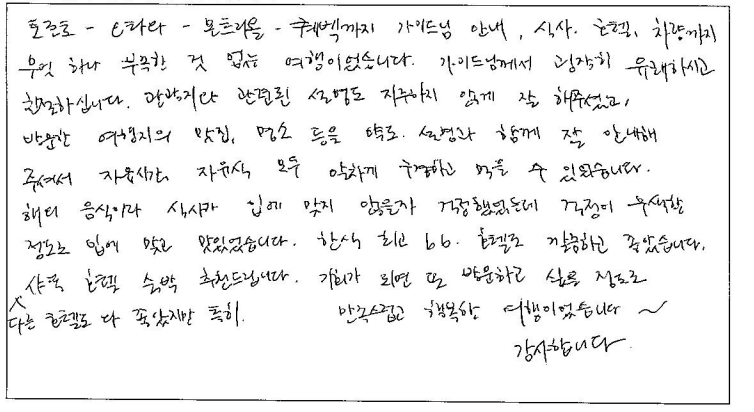 토론토 - 오타와 - 몬트리올 - 퀘벡까지 가이드님 안내, 식사. 호텔, 차량까지
무엇 하나 부족한 것 없는 여행이었습니다. 가이드님께서 굉장히 유쾌하시고
친절하십니다. 관광지와 관련된 설명도 지루하지 않게 잘 해주셨고,
방문한 여행지의 맛집, 명소 등을 약도. 설명과 함께 잘 안내해
주셔서 자유시간, 자유식 모두 알차게 구경하고 먹을 수 있었습니다.
해외 음식이라 식사가 입에 맞지 않을까 걱정했었는데 걱정이 무색할
정도로 입에 맞고 맛있었습니다. 한식 최고 bb. 호텔도 깔끔하고 좋았습니다.
샤토 호텔 숙박 추천드립니다. 기회가 되면 또 방문하고 싶을 정도로
다른 호텔도 다 좋았지만 특히. 만족스럽고 행복한 여행이었습니다 ~
감사합니다.